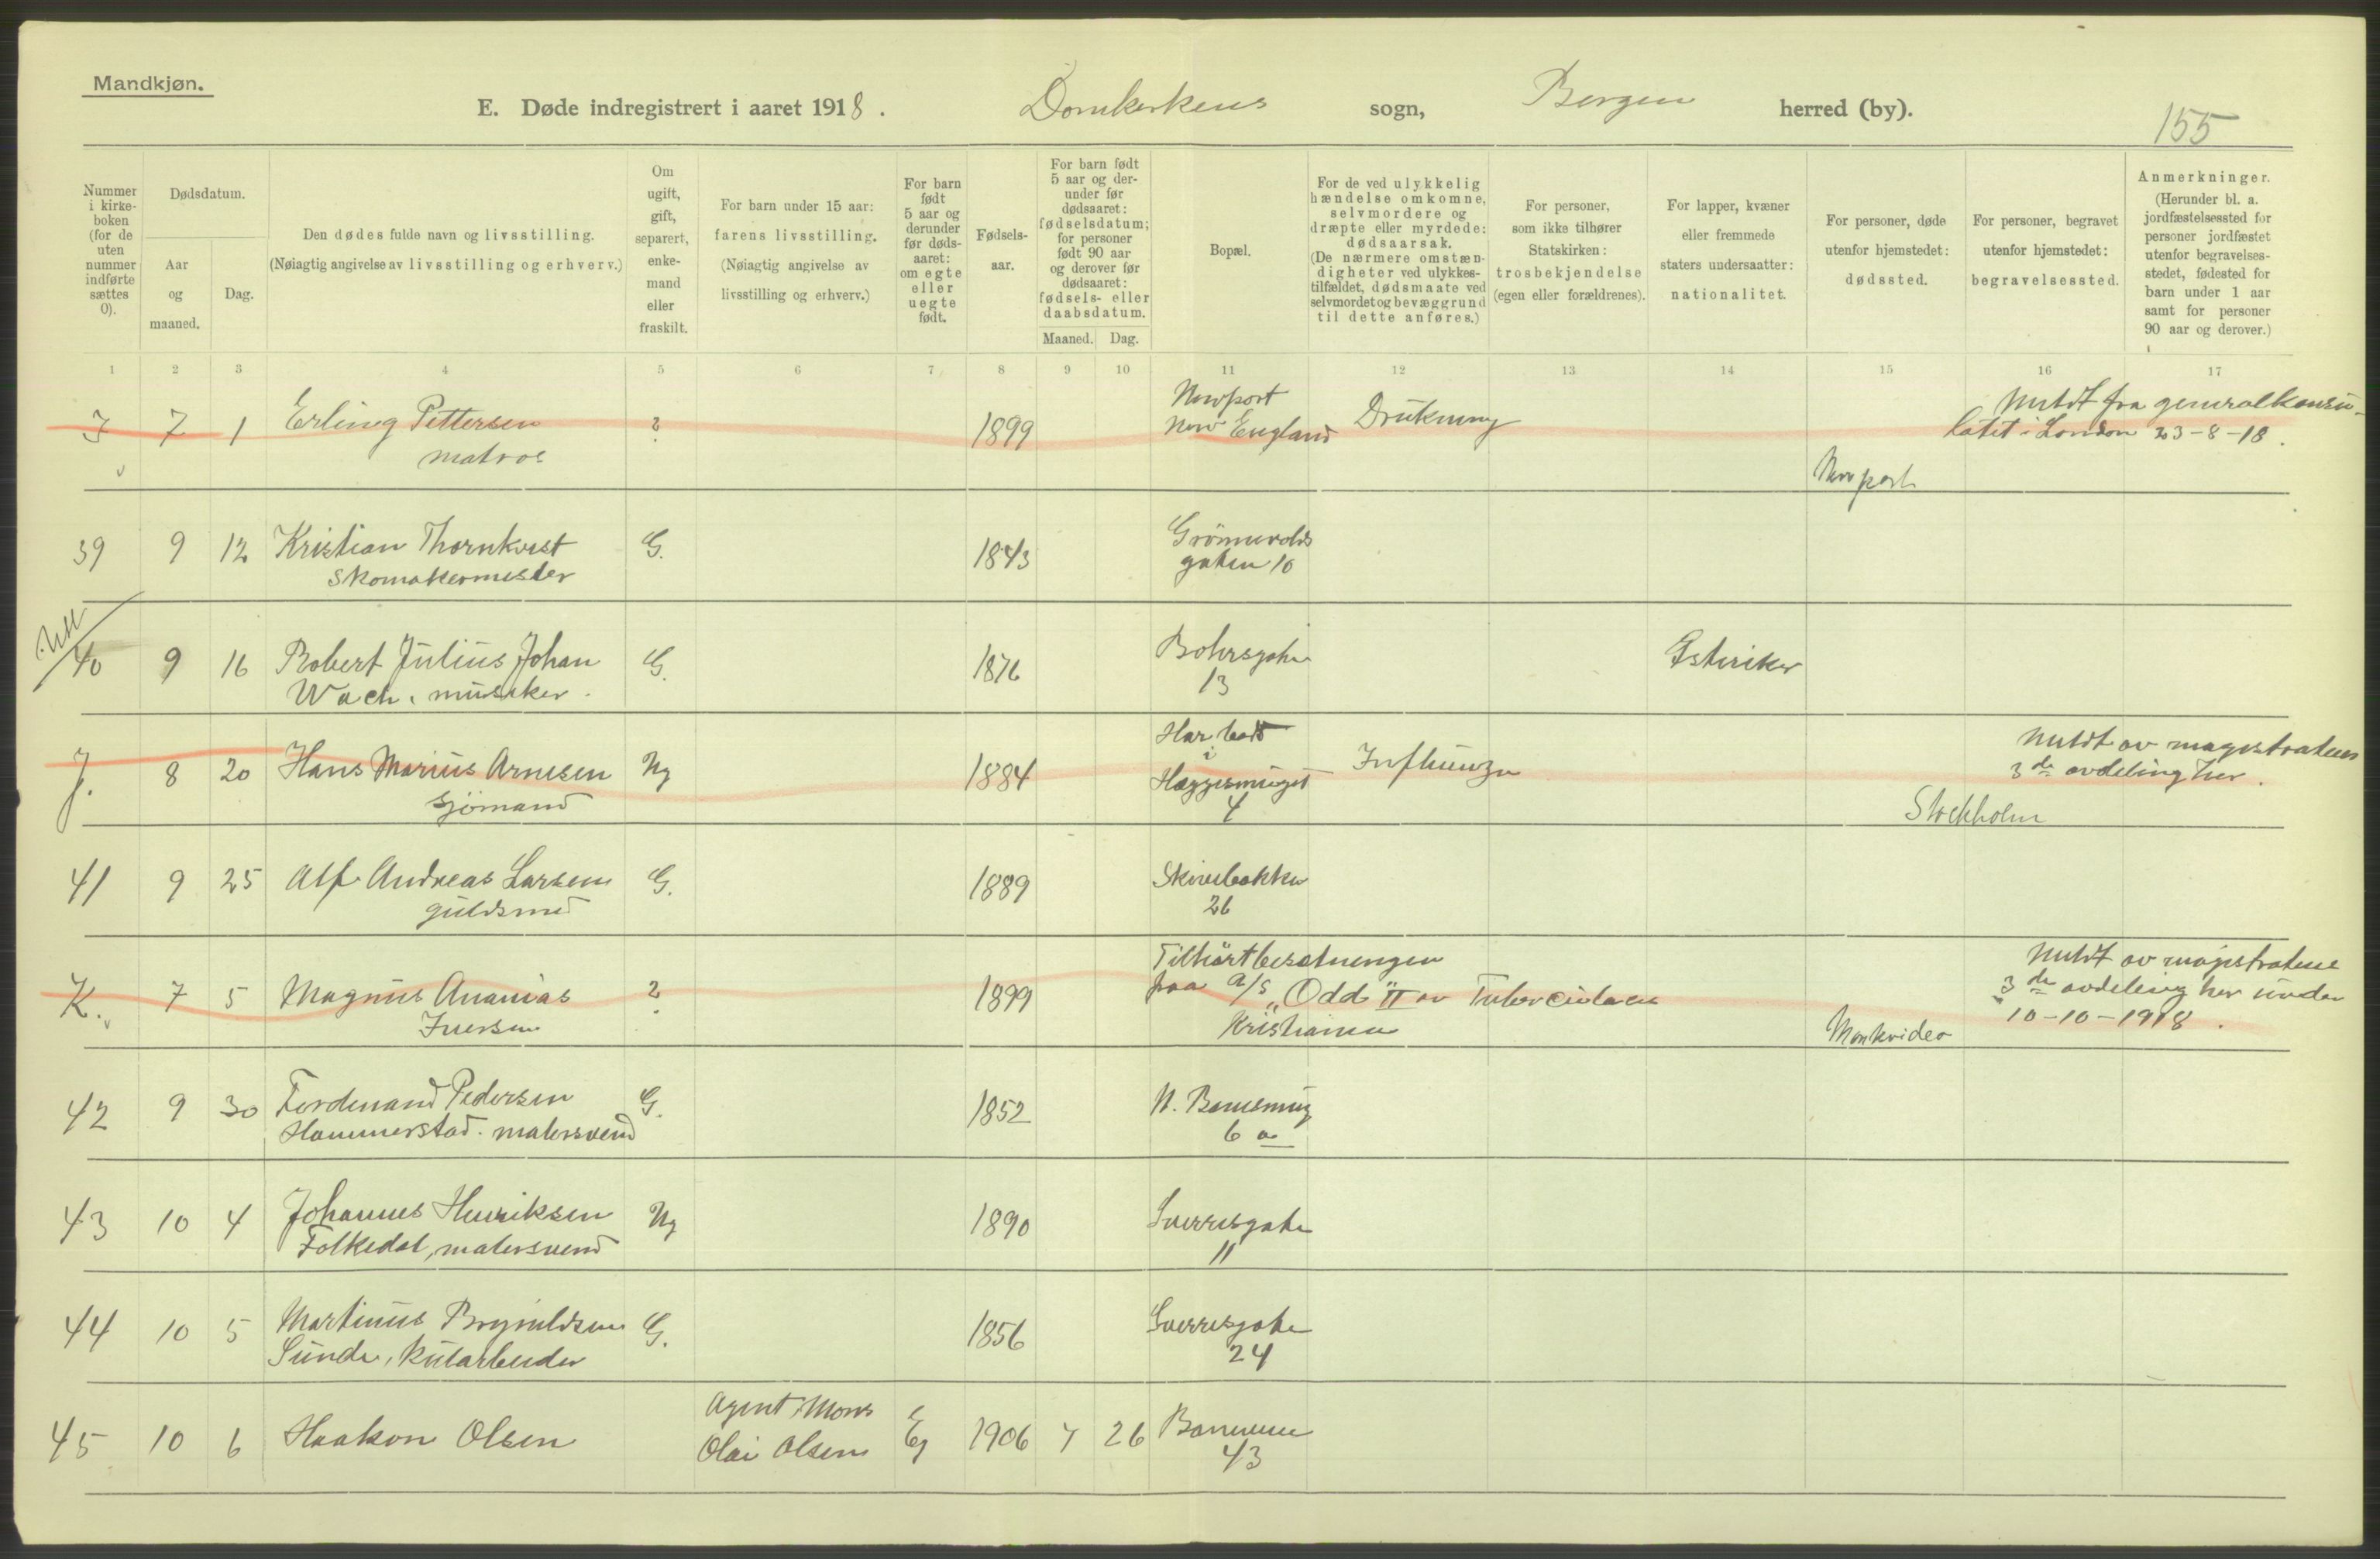 Mandkjøn.
E. Døde indregistrert i aaret 1918. Domkirkens sogn, Bergen herred (by).
155
Nummer i kirke-boken (for de uten nummer indførte sættes 0).
Dødsdatum.
Aar og maaned.
Dag.
Den dødes fulde navn og livsstilling.
(Nøiagtig angivelse av livsstilling og erhverv.)
Om ugift, gift, separert, enke-mand eller fraskilt.
For barn under 15 aar: farens livsstilling.
(Nøiagtig angivelse av livsstilling og erhverv.)
For barn født 5 aar og derunder før døds-aaret: om egte eller uegte født.
Fødsels-aar.
For barn født 5 aar og der-under før dødsaaret: fødselsdatum; for personer født 90 aar og derover før dødsaaret: fødsels- eller daabsdatum.
Maaned. Dag.
Bopæl.
For de ved ulykkelig hændelse omkomne, selvmordere og dræpte eller myrdede: dødsaarsak.
(De nærmere omstæn-digheter ved ulykkes-tilfældet, dødsmaate ved selvmordet og bevæggrund til dette anføres.)
For personer, som ikke tilhører Statskirken: trosbekjendelse (egen eller forældrenes).
For lapper, kvæner eller fremmede staters undersaatter: nationalitet.
For personer, døde utenfor hjemstedet: dødssted.
For personer, begravet utenfor hjemstedet: begravelsessted.
Anmerkninger.
(Herunder bl. a. jordfæstelsessted for personer jordfæstet utenfor begravelses-stedet, fødested for barn under 1 aar samt for personer 90 aar og derover.)
1 2 3 4 5 6 7 8 9 10 11 12 13 14 15 16 17
J 7 1 Erling Pettersen ? 1899 Newport Drukning Meldt fra generalkonsu-
matros New England latet i London 23-8-18.
Newport
39 9 12 Kristian Thornkvist G. 1843 Grönnevolds
skomakermester gaten 10
40 9 16 Robert Julius Johan G. 1876 Bohrsgate Østeriker
Wach, musiker. 13
J. 8 20 Hans Marius Arnesen Ug 1884 Har bodd i Influenza Meldt av magistratens
sjömand Heggesmuget 4 3de avdeling her.
Stockholm
41 9 25 Alf Andreas Larsen G. 1889 Skivebakken
guldsmed 26
K. 7 5 Magnus Ananias ? 1899 Tilhört besetningen Meldt av magistratens
Iversen paa a/s "Odd II" av Tuberculosis 3de avdeling her under
Kristiania 10-10-1918.
Montevideo
42 9 30 Ferdinand Pedersen G. 1852 N. Banesmug
Hammerstad. malersvend 6 a
43 10 4 Johannes Henriksen Ug 1890 Sverresgate
Folkedal, malersvend 11
44 10 5 Martinus Brynildsen G. 1856 Sverresgate
Sunde, kularbeider 24
45 10 6 Haakon Olsen Agent Mons Eg 1906 7 26
Olai Olsen 43